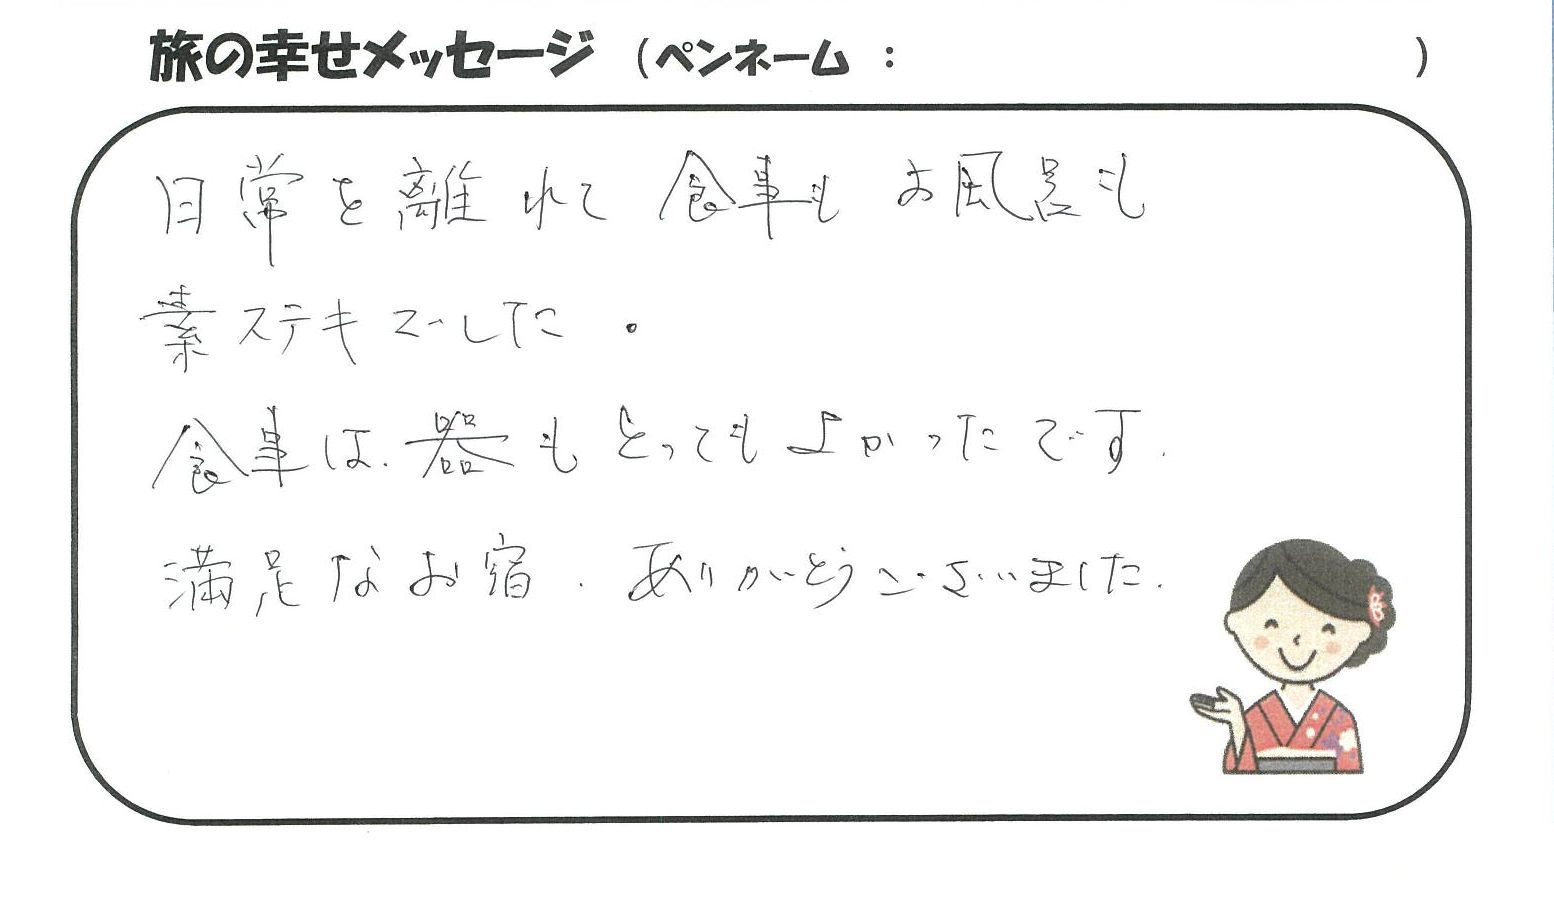 旅の幸せメッセージ (ペンネーム : )
日常を離れて 食事も お風呂も
素ステキでした .
食事は. 器も とっても よかったです.
満足なお宿. ありがとうございました.